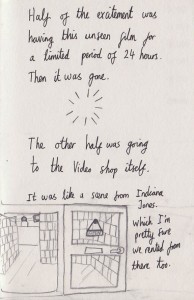 Half of the excitement was
having this unseen film for
a limited period of 24 hours.
Then it was gone.
The other half was going
to the Video shop itself.
It was like a scene from Indiana
Jones.
Which I'm
pretty sure
we rented from
there too.